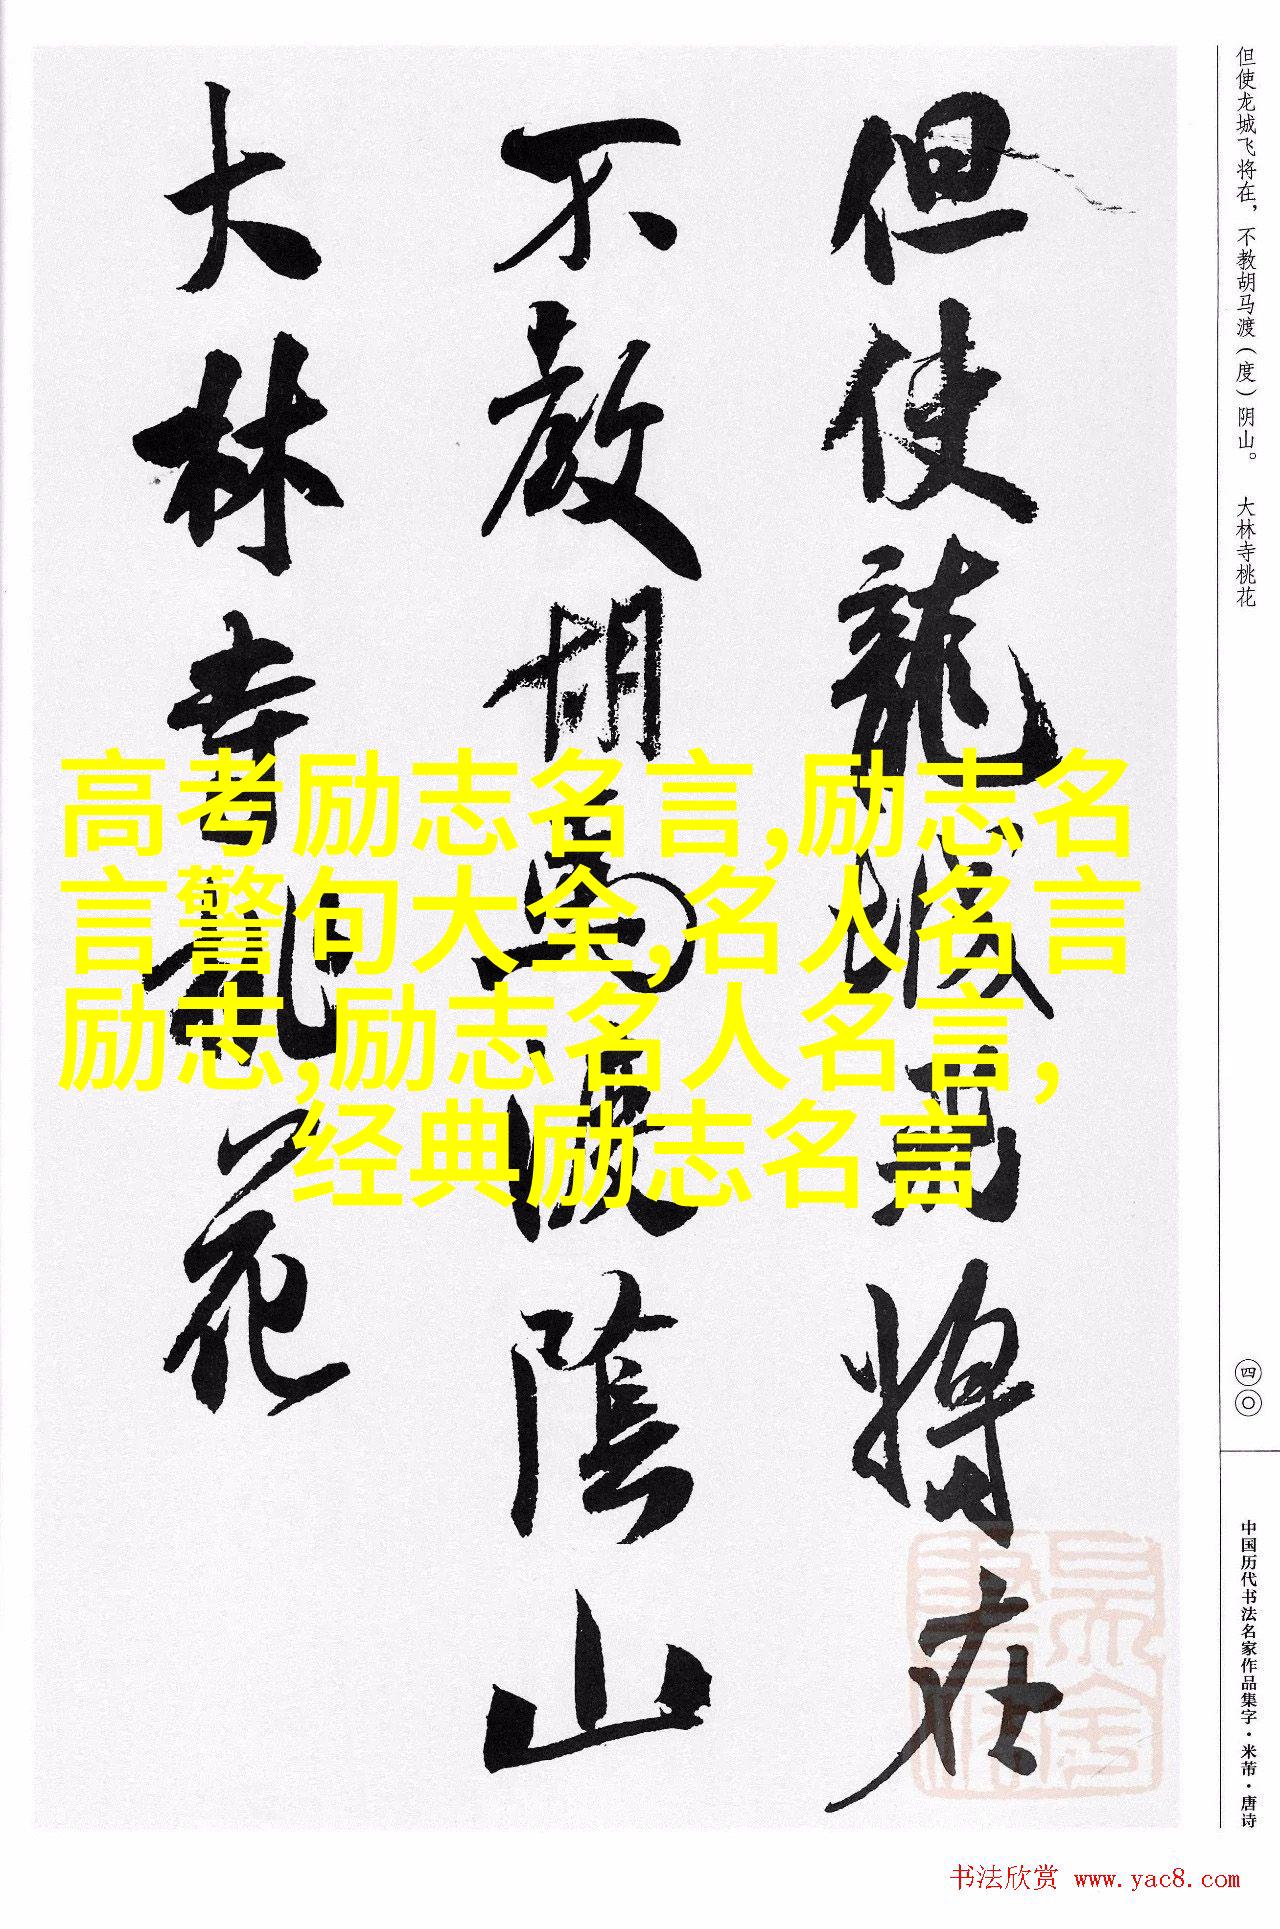 但使龙城飞将在，不教胡马渡（度）阴山。 大林寺桃花
但使龍城飛將在
不教胡馬渡陰山
大林寺桃花
高考励志名言,励志名
言警句大全,名人名言
励志,励志名人名言,
经典励志名言
四〇
中国历代书法名家作品集字·米芾·唐诗
书法欣赏 www.yac8.com